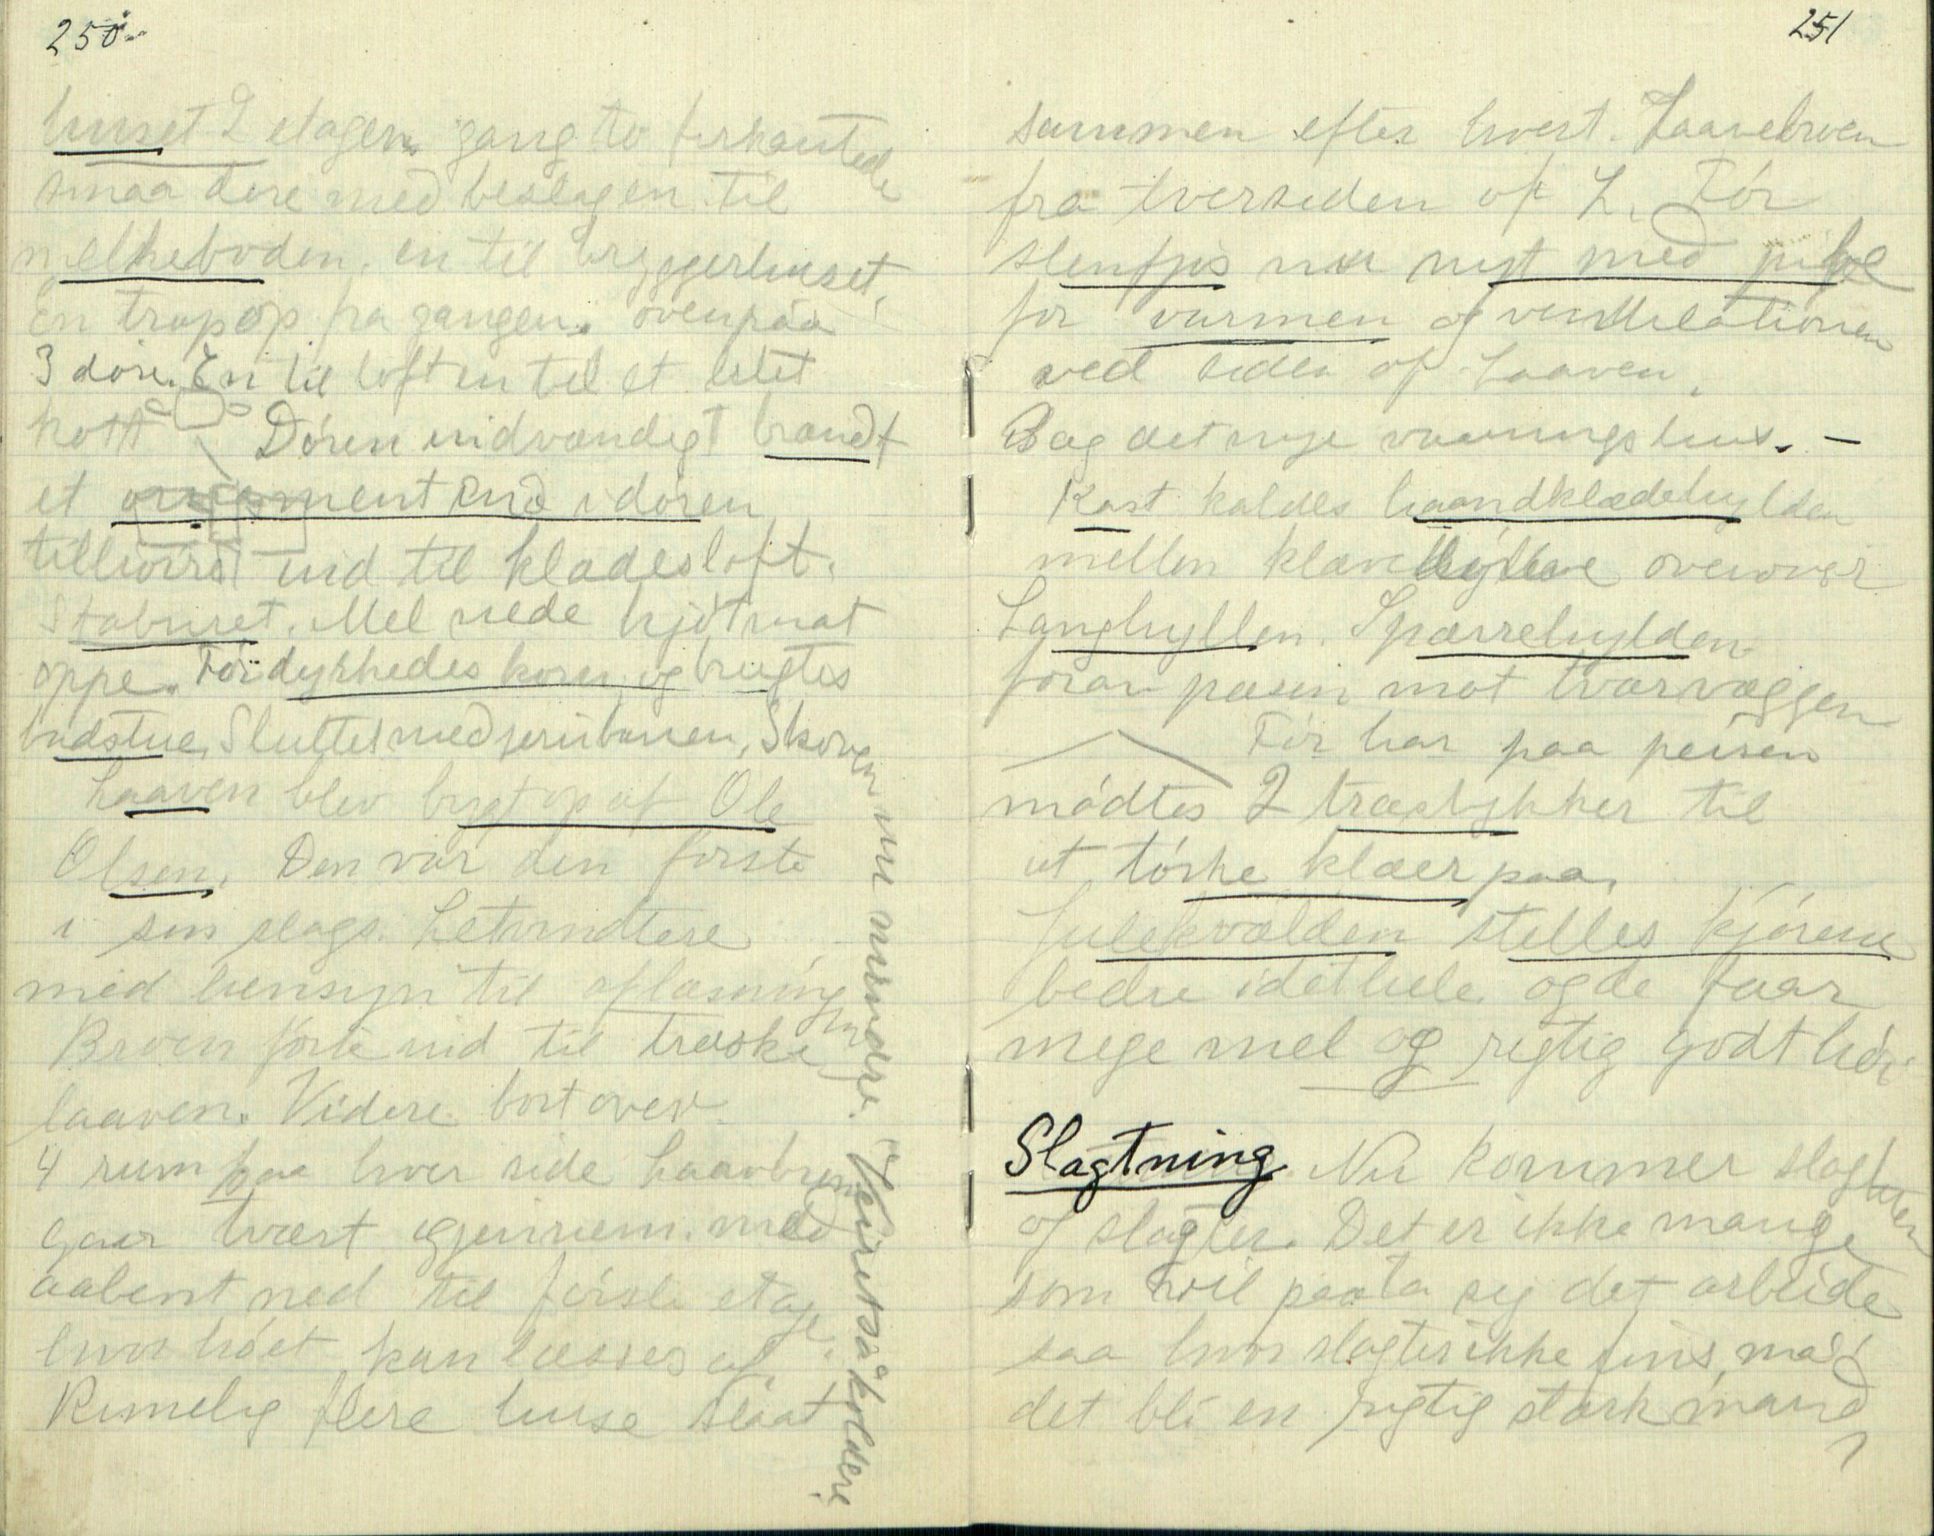 250
huset 2 etager. gang to firkantede
smaa døre med beslagen til
melkeboden, en til bryggerhuset.
En trap op fra gangen. ovenpaa
3 døre. En til loft en til et litet
kott Døren indvændigt brændt
et ornament Ind i døren
tilhøire ind til klædesloft.
Staburet. Mel nede kjøtmat
oppe. Før dyrkhedes koren og brugtes
badstue, Sluttet med jernbanen, Skoven nu mindre. Veiret så koldere
Laaven blev bygt op af Ole
Olsen. Den var den første
i sin slags. Letvindtere
med hensyn til aflæsningen
Broen førte ind til træske
laaven. Videre bortover
4 rum paa hver side Laavbroen
gaar tvært igjennem med
aabent ned til første etage
hvor høet kan læsses af.
Rimelig flere huse staat
251
sammen efter hvert. Laavebroen
fra tversiden af L. Før
nu nyt med pibe
for varmen og ventilationen
ved siden af Laaven.
Bag det nye vaaningshus. —
Kast kaldes haandklædehylden
mellen overover
Langhyllen. Spærrehylden
foran peisen mot tværvæggen
Før har paa peisen
mødtes 2 træstykker til
at tørke klæer paa.
Julekvælden stelles kjørene
bedre idethele og de faar
mege mel og rigtig godt høi
Slagtning. Nu kommer slagteren
og slagter. Det er ikke mange
som vil paata sig det arbeide
saa hvor slagter ikke fins, maa
det bli en rigtig stærk mand